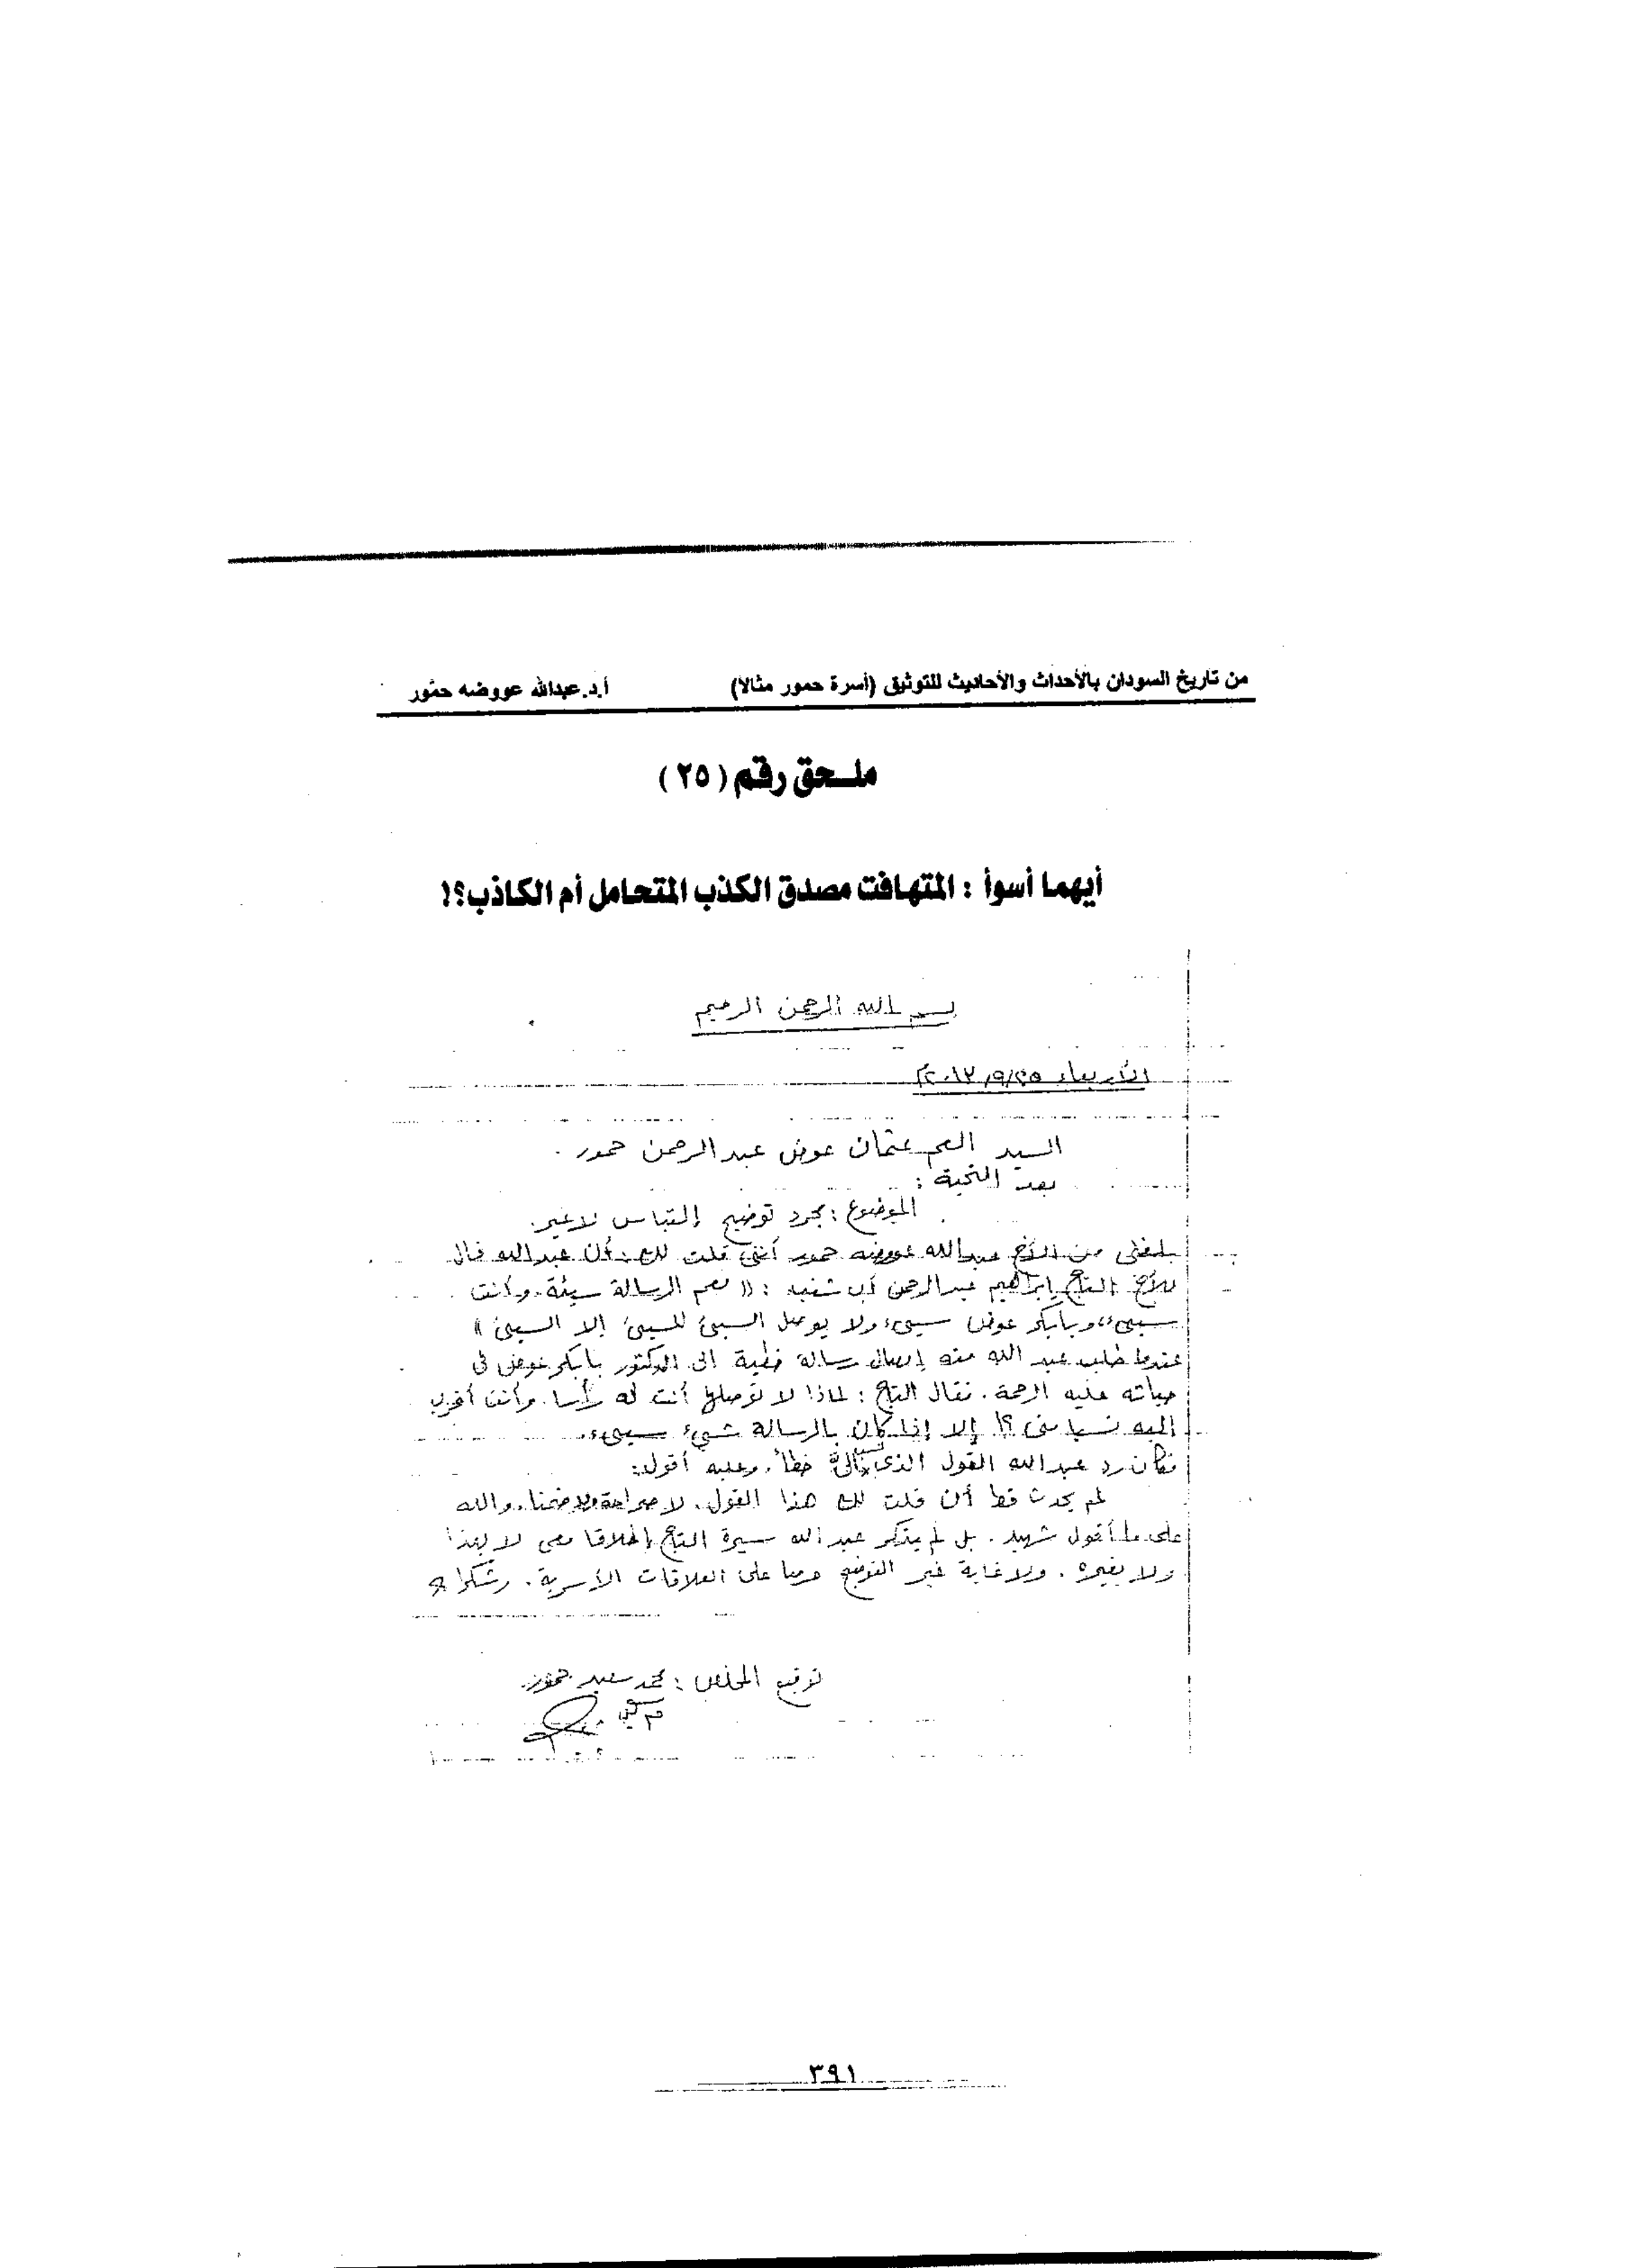 من تاريخ السودان بالأحداث والأحاديث للتوثيق (أسرة حمور مثالا) أ.د.عبدالله عووضه حمّور
ملحق رقم (٢٥)
أيهما أسوأ : المتهافت مصدق الكذب المتحامل أم الكاذب؟!
بسم الله الرحمن الرحيم
الأربعاء ٢٠١٣/٩/٢٥م
السيد العم عثمان عوض عبدالرحمن حمور .
بعد التحية :
الموضوع : مجرد توضيح إلتباس لا غير.
بلغني من الأخ عبدالله عووضه حمور أنني قلت لك : أن عبدالله قال
للأخ التاج إبراهيم عبدالرحمن أب شنب : (( نعم الرسالة سيئة وأنت
سيىء وبابكر عوض سيىء ولا يوصل السيئ للسيئ إلا السيئ ))
عندما طلب عبد الله منه إيصال رسالة خطية الى الدكتور بابكر عوض فى
حياته عليه الرحمة . فقال التاج : لماذا لا توصلها أنت له رأسا وأنت أقرب
إليه نسبا منى ؟! إلا إذا كان بالرسالة شيء سيىء .
فكان رد عبدالله القول الذى نسب الىّ خطأ . وعليه أقول :
لم يحدث قط أن قلت لك هذا القول . لا صراحة ولا ضمنا . والله
على ما أقول شهيد . بل لم يذكر عبدالله سيرة التاج إطلاقا معى لا بهذا
ولا بغيره . ولا غاية غير التوضيح حرصا على العلاقات الأسرية . وشكرا
توقيع المخلص : محمد سعيد حمور
٣٩١